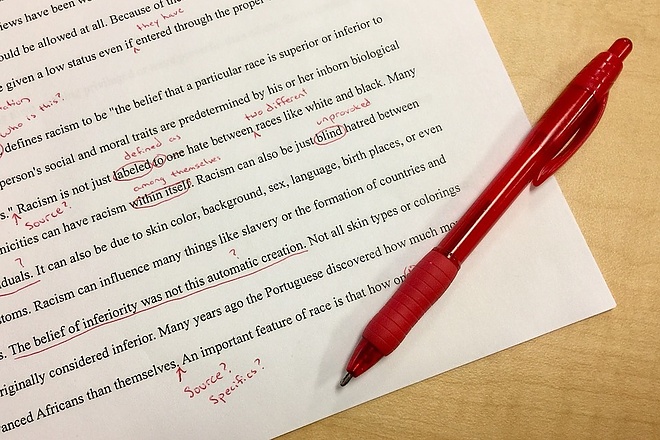 iews have been w
ould be allowed at all. Because of the
they have
e given a low status even if entered through the proper
defines racism to be "the belief that a particular race is superior or inferior to
who is this?
person's social and moral traits are predetermined by his or her inborn biological
defined as
two different
s." Racism is not just labeled to one hate between races like white and black. Many
Source?
among themselves
unprovoked
nicities can have racism within itself. Racism can also be just blind hatred between
?
duals. It can also be due to skin color, background, sex, language, birth places, or even
toms. Racism can influence many things like slavery or the formation of countries and
?
s. The belief of inferiority was not this automatic creation. Not all skin types or colorings
riginally considered inferior. Many years ago the Portuguese discovered how much mo
anced Africans than themselves. An important feature of race is that how on
Source?
Specifics?